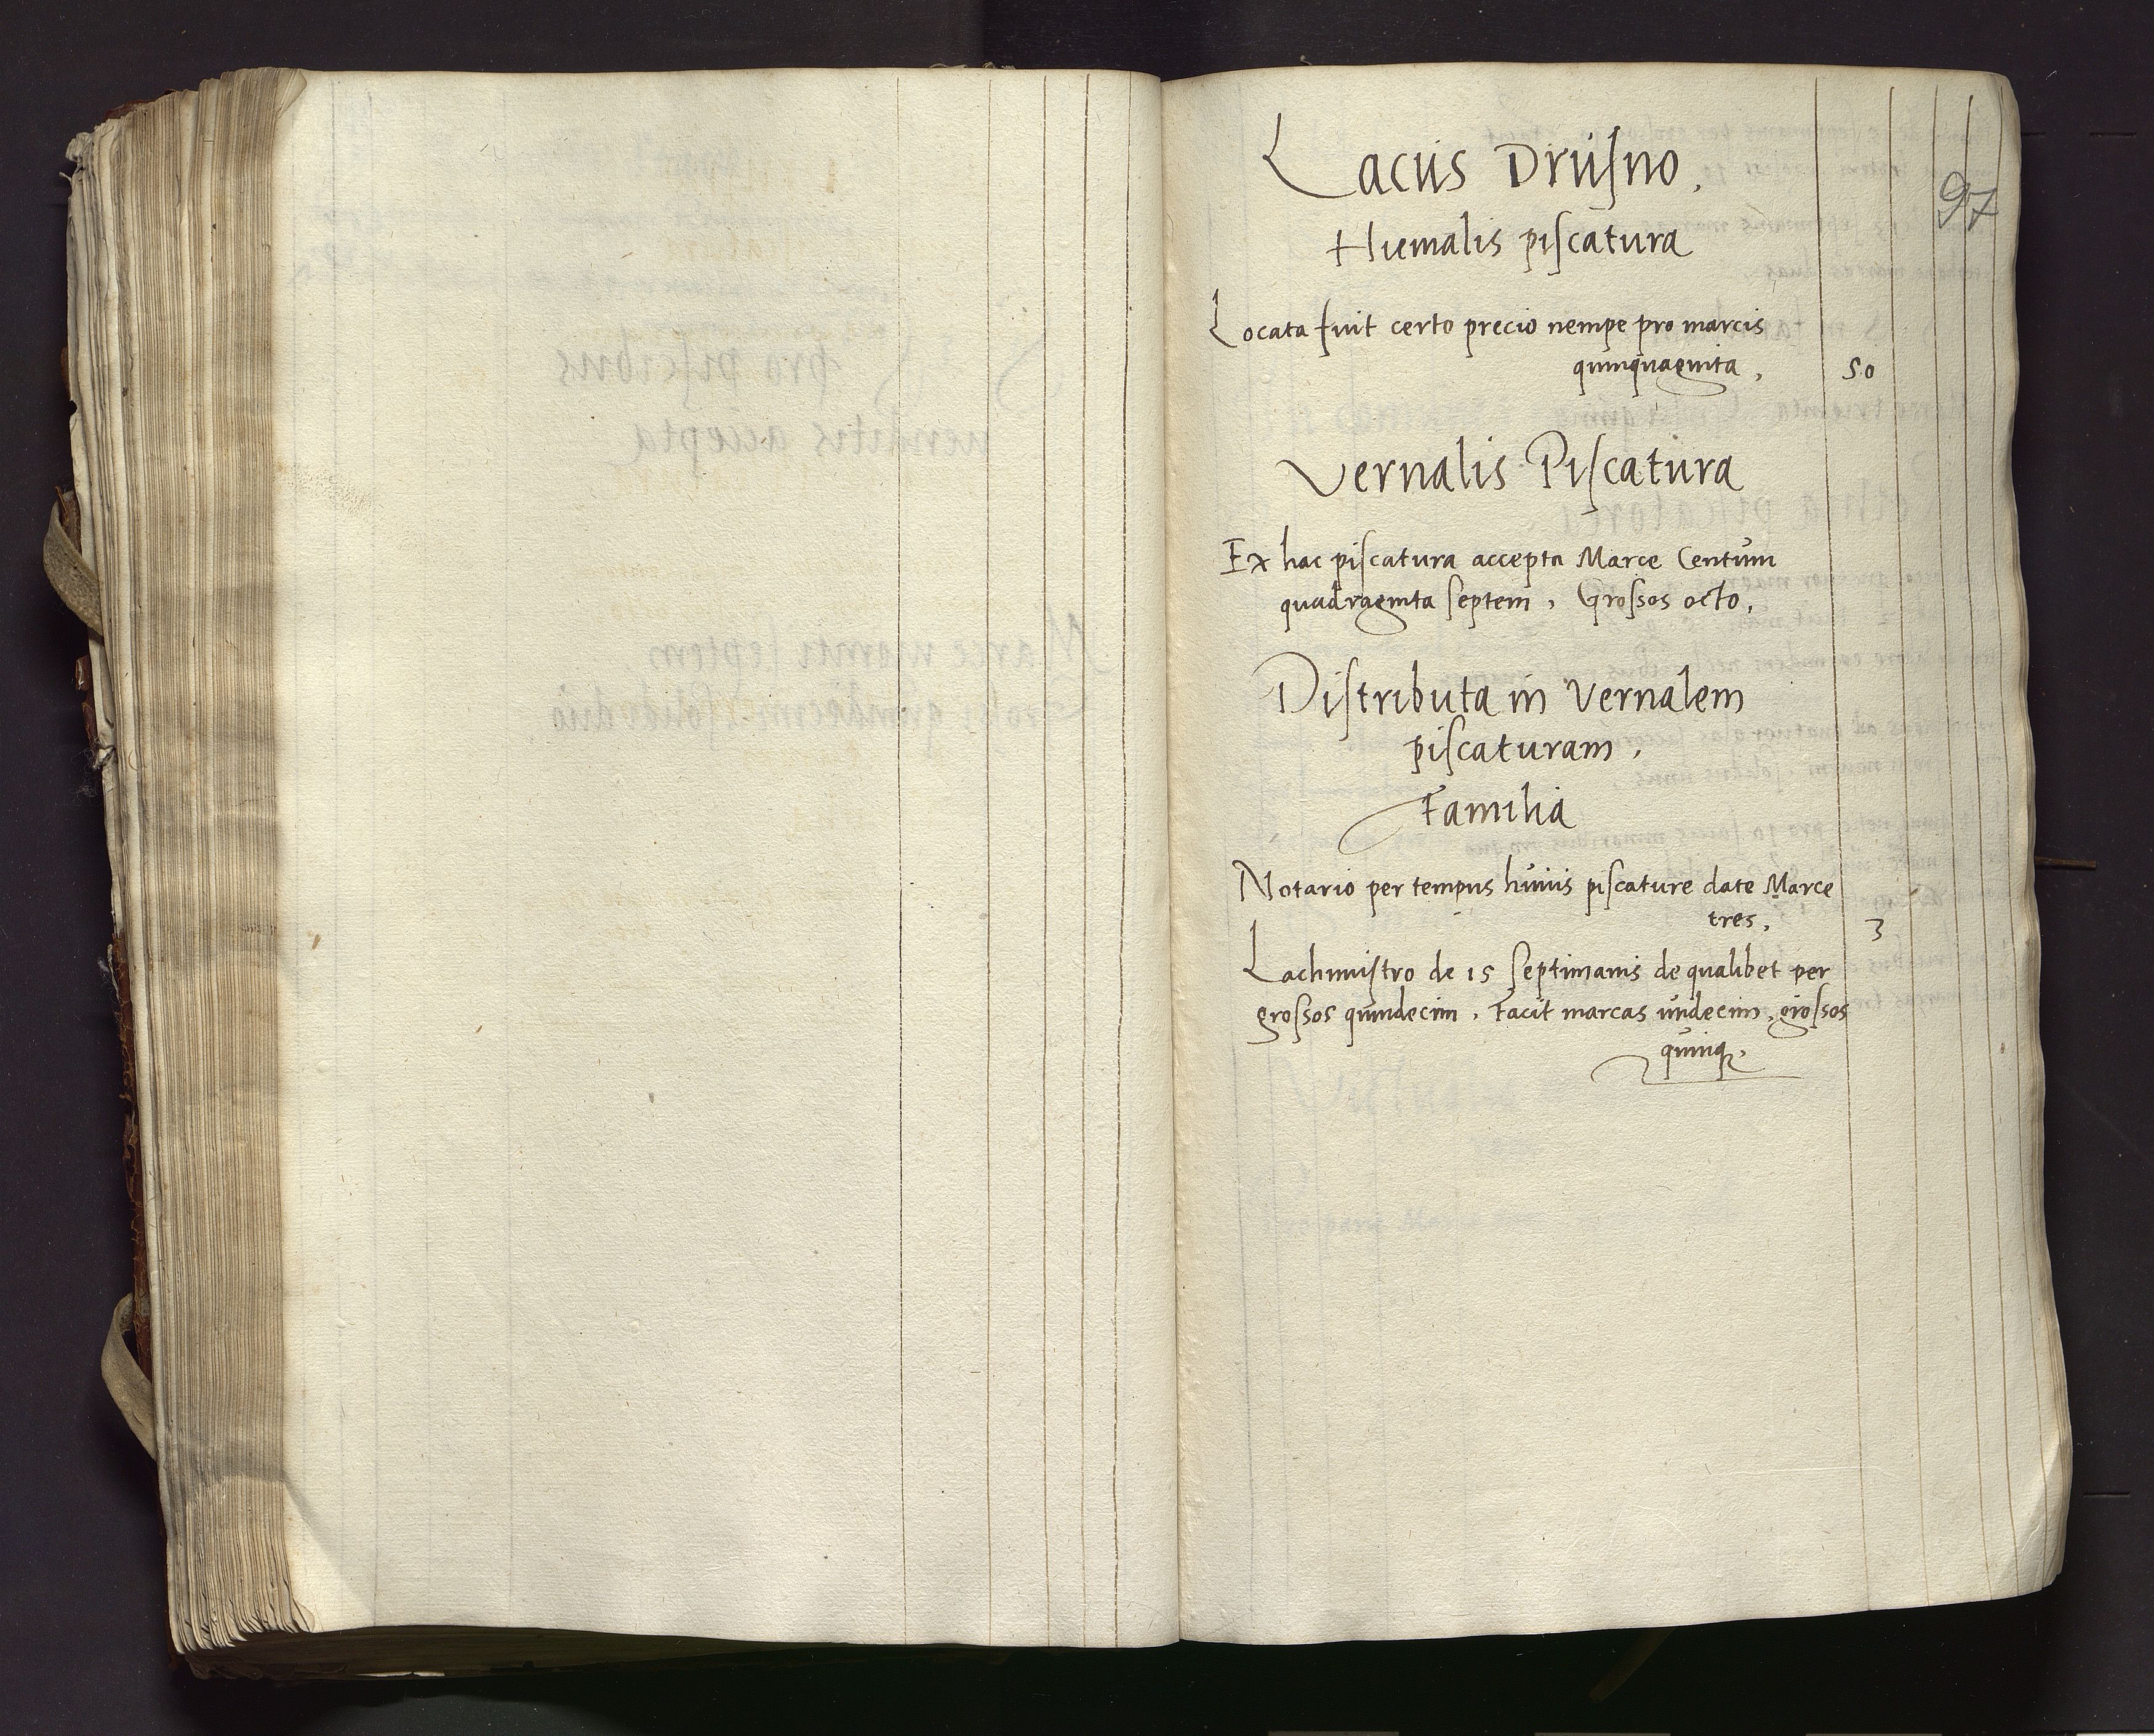 97
Lacus Drusno.
Hiemalis piscatura
Locata fuit certo precio nempe pro marcis
quinquaginta, 50
Vernalis Piscatura
Ex hac piscatura accepta Marce Centum
quadraginta septem, Grossos octo,
Distributa in Vernalem
piscaturam,
Familia
Notario per tempus huius piscature date Marce
tres, 3
Lachmistro de 15 septimanis de qualibet per
grossos quindecim, Facit marcas undecim, grossos
quinq,